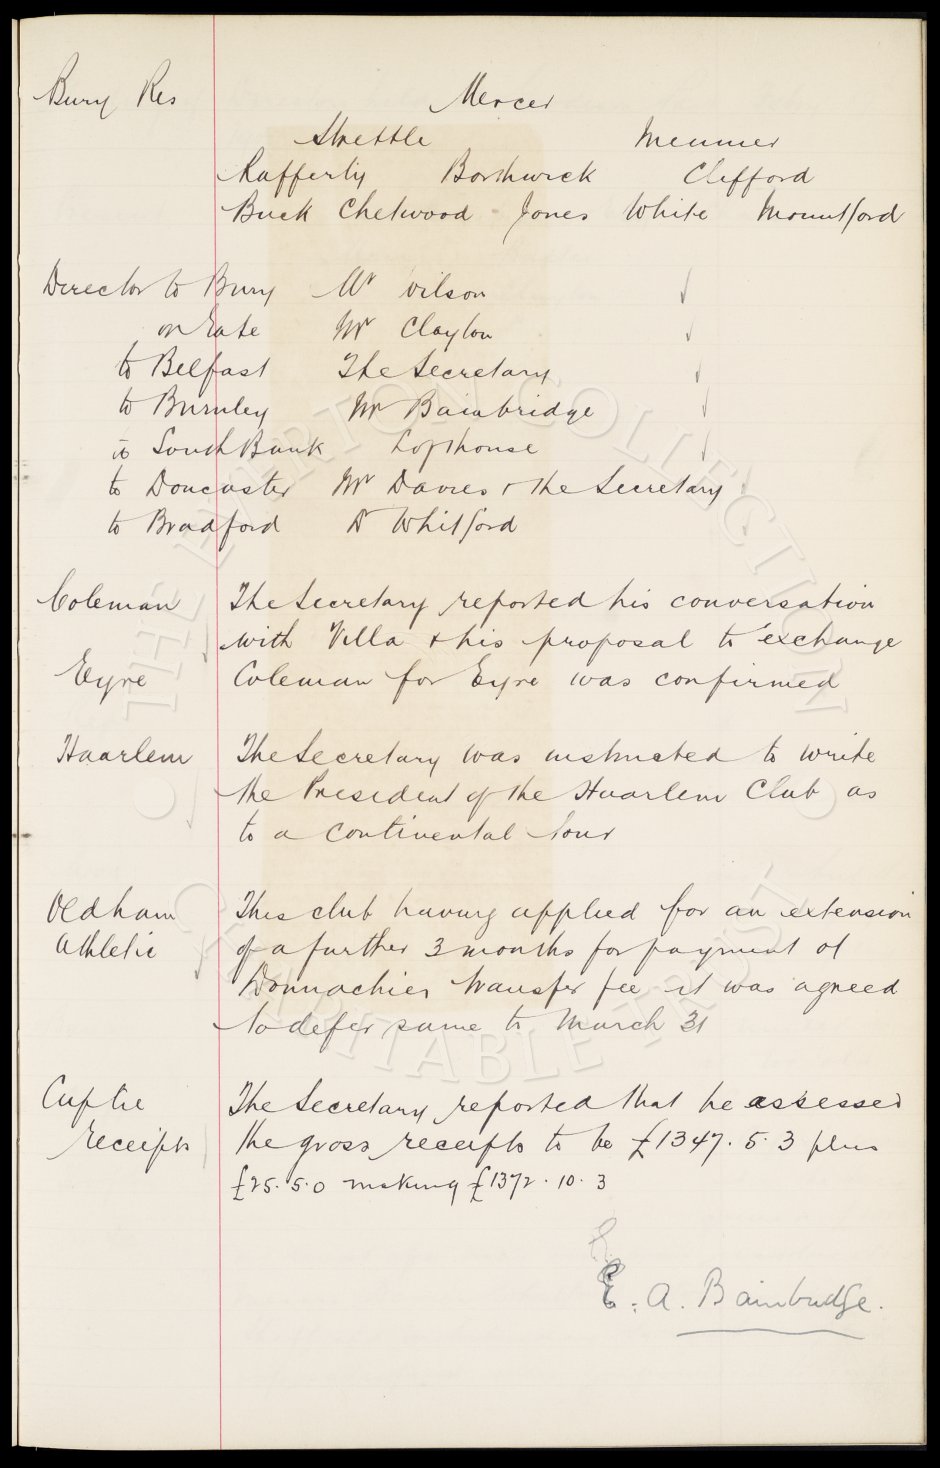 Bury Res Mercer
Strettle Meunier
Rafferty Borthwick Clifford
Buck Chetwood Jones White Mountford
Director to Bury Mr Wilson
on Gate Mr Clayton
to Belfast The Secretary
to Burnley Mr Bainbridge
to South Bank Lofthouse
to Doncaster Mr Davies & the Secretary
to Bradford Dr Whitford
Coleman The Secretary reported his conversation
with Villa & his proposal to exchange
Eyre Coleman for Eyre was confirmed
Haarlem The Secretary was instructed to write
the President of the Haarlem Club as
to a continental tour
Oldham This club having applied for an extension
Athletic of a further 3 months for payment of
Donnachies transfer fee it was agreed
to defer same to March 31
Cup tie The Secretary reported that he assessed
receipts the gross receipts to be £1347.5.3 plus
£25.5.0 making £1372.10.3
E. A. Bainbridge.
THE EVERTON COLLECTION
CHARITABLE TRUST